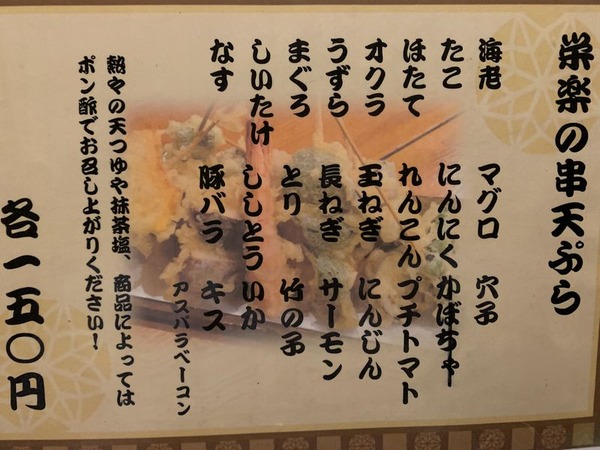 栄楽の串天ぷら
海老 マグロ 穴子
たこ にんにく かぼちゃ
ほたて れんこん プチトマト
オクラ 玉ねぎ にんじん
うずら 長ねぎ サーモン
まぐろ とり 竹の子
しいたけ ししとう いか
なす 豚バラ キス
アスパラベーコン
熱々の天つゆや抹茶塩、商品によっては
ポン酢でお召し上がりください!
各一五〇円